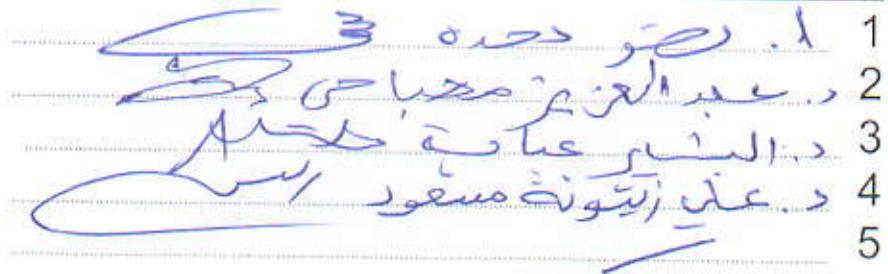 1 ا. رضو دحده
2 د. عبد العزيز مصباحي
3 د. البشير عباية
4 د. علي زيتونة مسعود
5